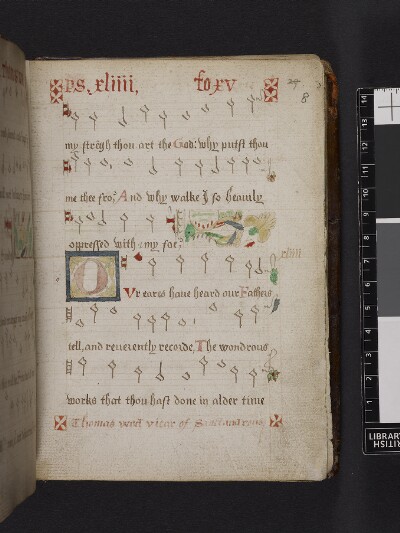 ps. xliiii, fo xv
8
my strēgh thou art the God: why putst thou
me thee fro? And why walke I so heauily
oppressed with my foe?
xliiii
OVr eares haue heard our Fathers
tell, and reuerently recorde, The wondrous
works that thou hast done in alder time
Thomas vicar of
LIBRARY
BRITISH
1
2
3
4
5
6
7
8
9
10
11
12
13
14